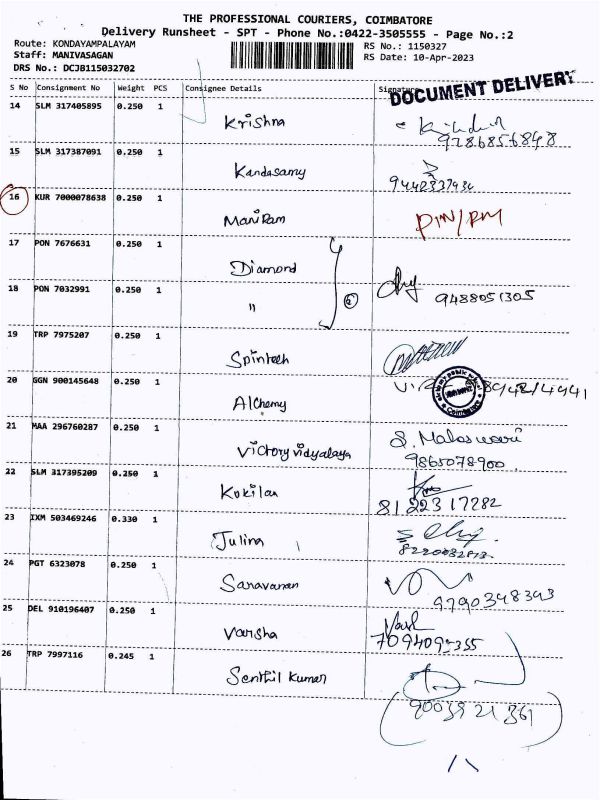 THE PROFESSIONAL COURIERS, COIMBATORE
Delivery Runsheet - SPT - Phone No.:0422-3505555 - Page No.:2
Route: KONDAYAMPALAYAM
Staff: MANIVASAGAN
DRS No.: DCJB115032702
RS No.: 1150327
RS Date: 10-Apr-2023
S No Consignment No Weight PCS Consignee Details Signature
DOCUMENT DELIVERY
14 SLM 317405895 0.250 1 Krishna
9786856848
15 SLM 317387091 0.250 1 Kandasamy
9442337936
16 KUR 7000078638 0.250 1 ManiRam DIN/RM
17 PON 7676631 0.250 1 Diamond
18 PON 7032991 0.250 1 " 2 9488051305
19 TRP 7975207 0.250 1 Spintech
20 GGN 900145648 0.250 1 Alchemy
21 MAA 296760287 0.250 1 Victory vidyalaya S. Maheswari
9865078900
22 SLM 317395209 0.250 1 Kokilan
81223 17282
23 IXM 503469246 0.330 1 Julina
24 PGT 6323078 0.250 1 Saravanan
9790348343
25 DEL 910196407 0.250 1 Varsha Varsh
26 TRP 7997116 0.245 1 Senthil Kumar
90039 21 361